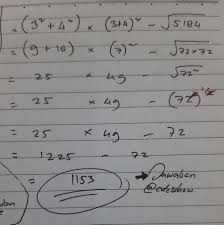 = (3² + 4²) × (3+4)² - √5184
= (9 + 16) × (7)² - √72×72
= 25 × 49 - √72²
= 25 × 49 - (72²)^½
= 25 × 49 - 72
= 1225 - 72
= 1153 → Jawaban